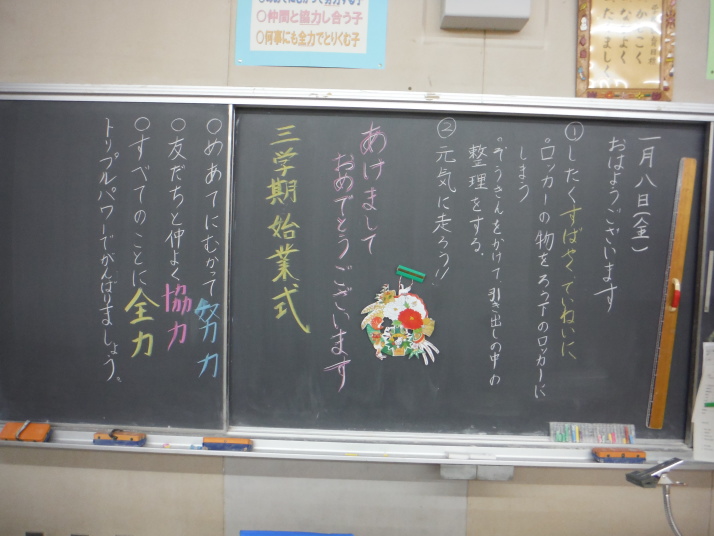 ○仲間と協力し合う子
○何事にも全力でとりくむ子
一月八日(金)
おはようございます
①したくすばやく、ていねいに
・ロッカーの物をろう下のロッカーに
しまう
・ぞうきんをかけて引き出しの中の
整理をする。
②元気に走ろう!!
あけまして
おめでとうございます
三学期始業式
○めあてにむかって努力
○友だちと仲よく協力
○すべてのことに全力
トリプルパワーでがんばりましょう。